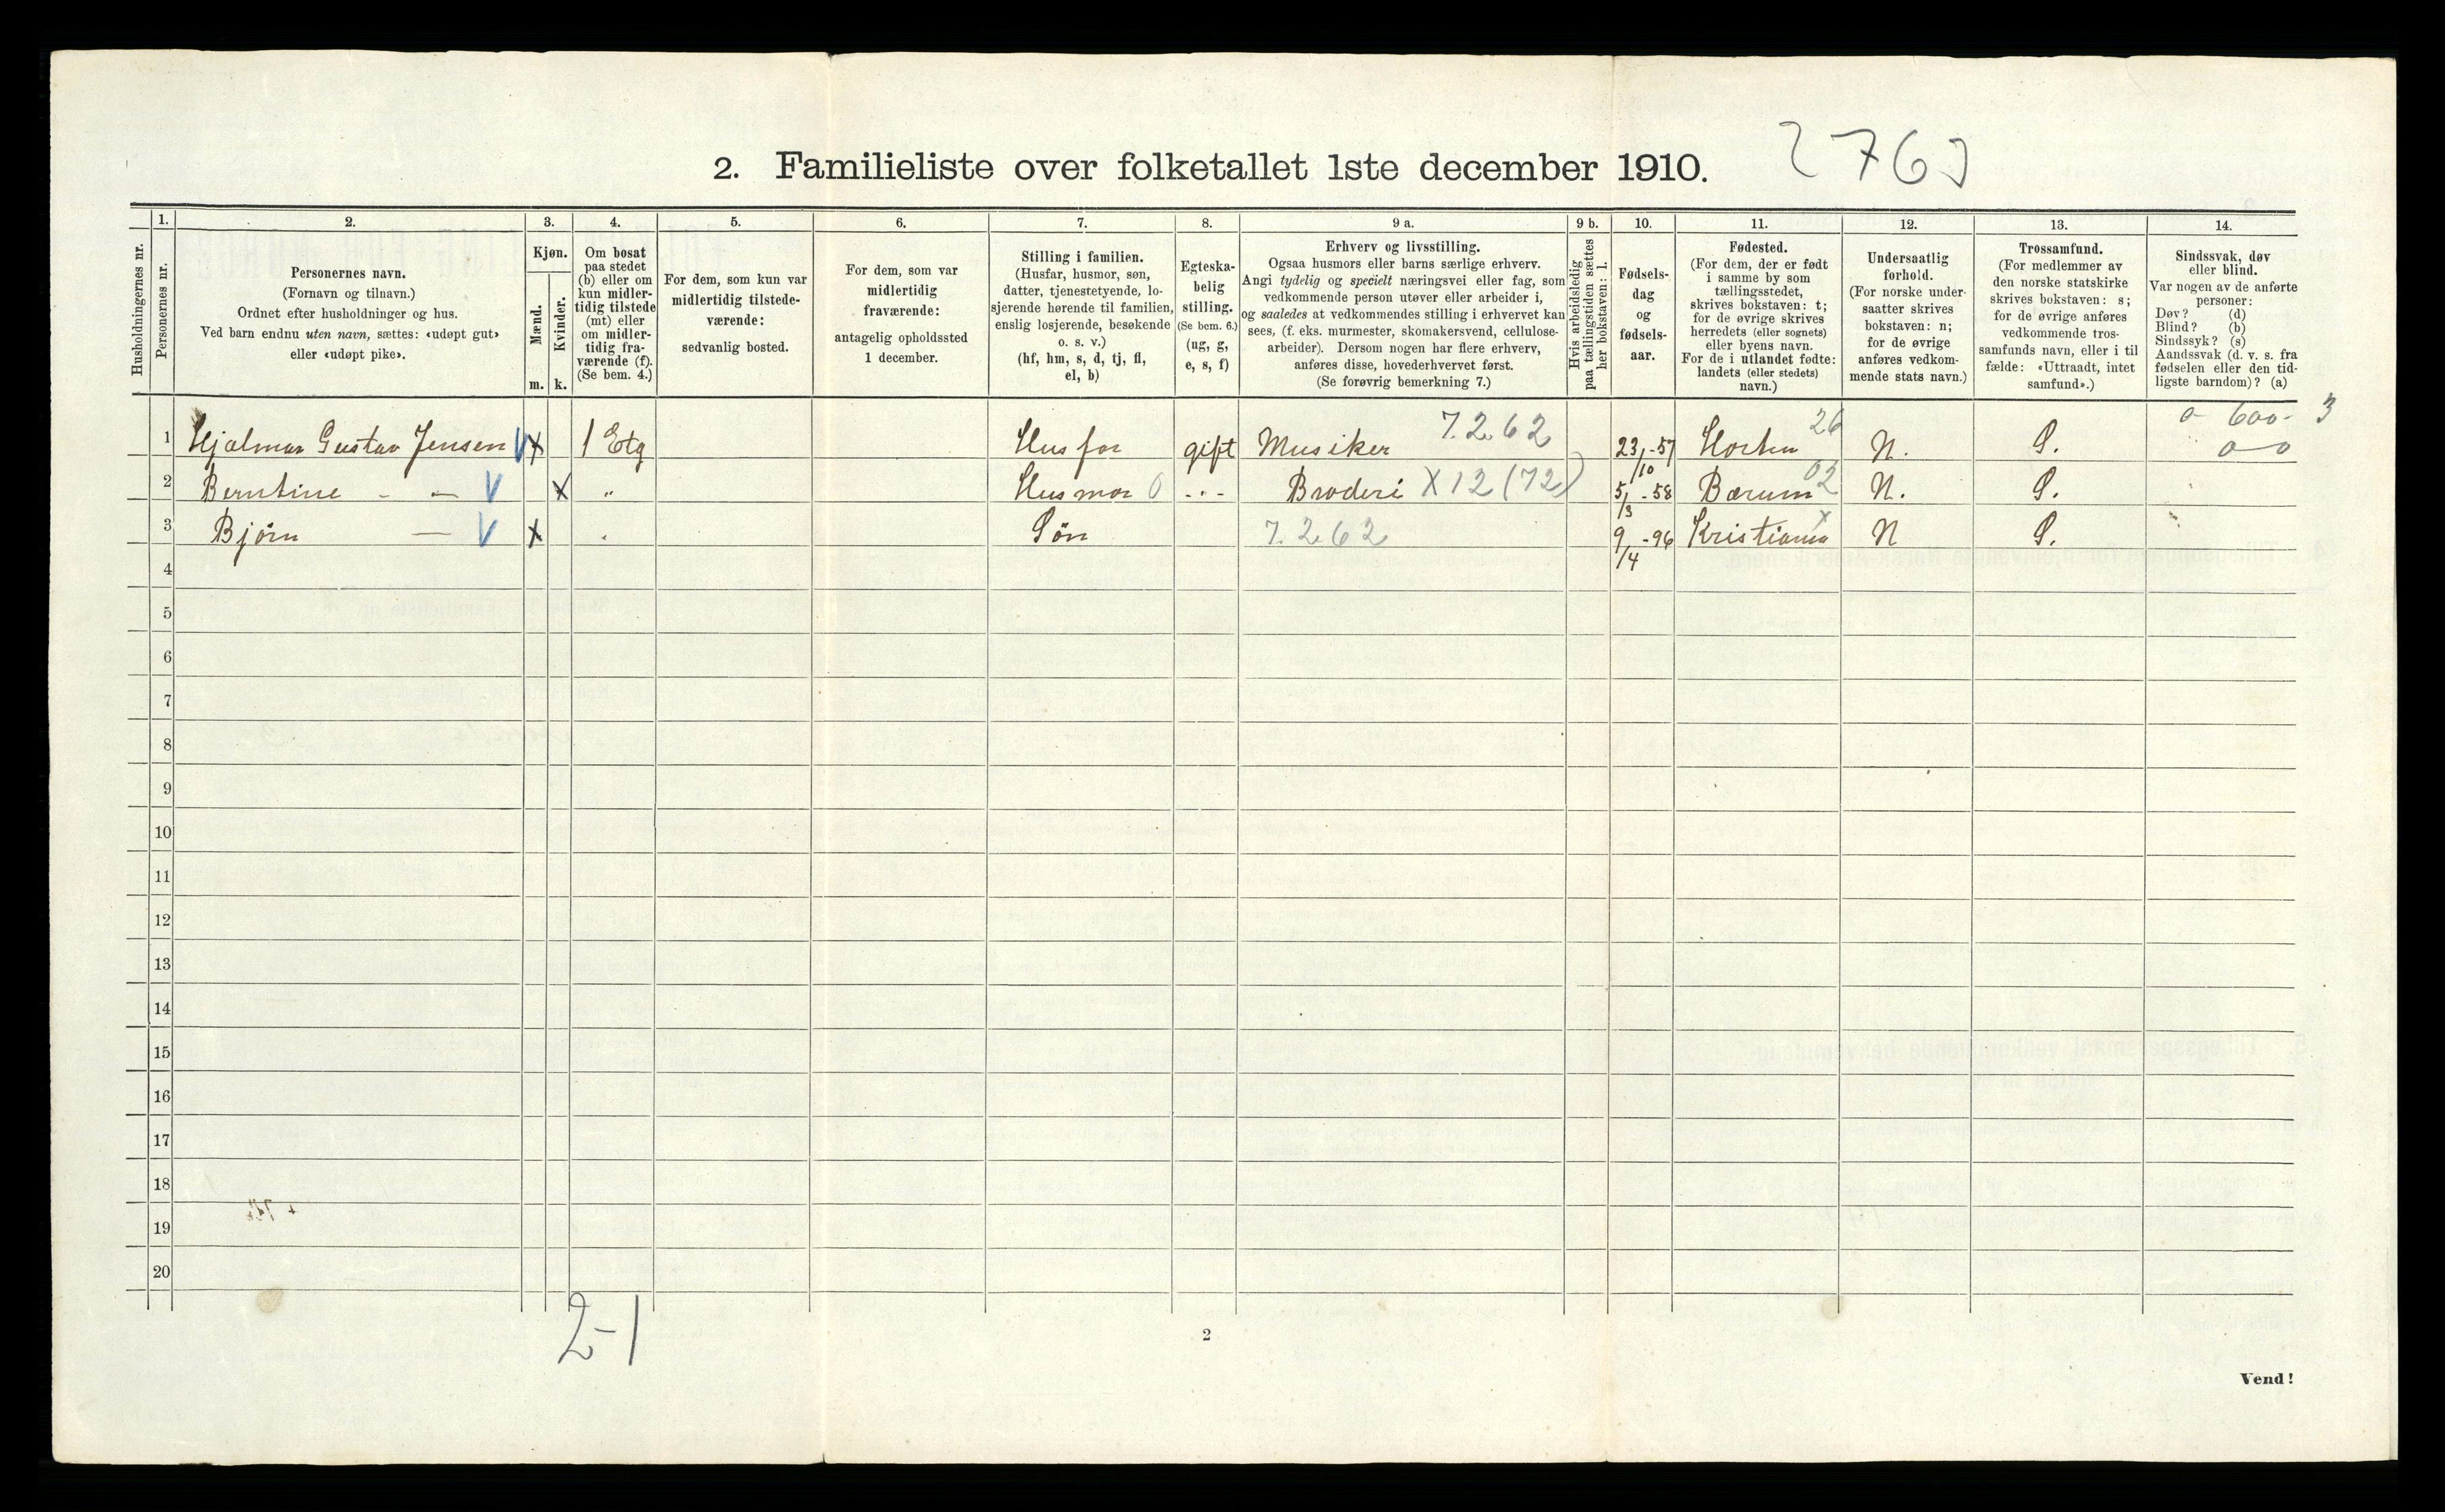 2. Familieliste over folketallet 1ste december 1910.
Husholdningernes nr.
1.
Personernes nr.
2.
Personernes navn.
(Fornavn og tilnavn.)
Ordnet efter husholdninger og hus.
Ved barn endnu uten navn, sættes: «udøpt gut»
eller «udøpt pike».
3.
Kjøn.
Mænd.
m.
Kvinder.
k.
4.
Om bosat
paa stedet
(b) eller om
kun midler-
tidig tilstede
(mt) eller
om midler-
tidig fra-
værende (f).
(Se bem. 4.)
5.
For dem, som kun var
midlertidig tilstede-
værende:
sedvanlig bosted.
6.
For dem, som var
midlertidig
fraværende:
antagelig opholdssted
1 december.
7.
Stilling i familien.
(Husfar, husmor, søn,
datter, tjenestetyende, lo-
sjerende hørende til familien,
enslig losjerende, besøkende
o. s. v.)
(hf, hm, s, d, tj, fl,
el, b)
8.
Egteska-
belig
stilling.
(Se bem. 6.)
(ug, g,
e, s, f)
9 a.
Erhverv og livsstilling.
Ogsaa husmors eller barns særlige erhverv.
Angi tydelig og specielt næringsvei eller fag, som
vedkommende person utøver eller arbeider i,
og saaledes at vedkommendes stilling i erhvervet kan
sees, (f. eks. murmester, skomakersvend, cellulose-
arbeider). Dersom nogen har flere erhverv,
anføres disse, hovederhvervet først.
(Se forøvrig bemerkning 7.)
9 b.
Hvis arbeidsledig
paa tællingstiden sættes
her bokstaven: l.
10.
Fødsels-
dag
og
fødsels-
aar.
11.
Fødested.
(For dem, der er født
i samme by som
tællingsstedet,
skrives bokstaven: t;
for de øvrige skrives
herredets (eller sognets)
eller byens navn.
For de i utlandet fødte:
landets (eller stedets)
navn.)
12.
Undersaatlig
forhold.
(For norske under-
saatter skrives
bokstaven: n;
for de øvrige
anføres vedkom-
mende stats navn.)
13.
Trossamfund.
(For medlemmer av
den norske statskirke
skrives bokstaven: s;
for de øvrige anføres
vedkommende tros-
samfunds navn, eller i til
fælde: «Uttraadt, intet
samfund».)
14.
Sindssvak, døv
eller blind.
Var nogen av de anførte
personer:
Døv? (d)
Blind? (b)
Sindssyk? (s)
Aandssvak (d. v. s. fra
fødselen eller den tid-
ligste barndom)? (a)
0 600- 3
1 Hjalmar Gustav Jensen V x 1 Etg Husfar gift Musiker 7.2.62 23/10-57 Horten 26 N. S. 0-0
2 Berntine - — V x " Husmor 0 -"- Broderi X12(72) 5/3-58 Bærum 02 N. S.
3 Bjørn — V x " Søn 7.2.62 9/4-96 Kristiania x N S.
4
5
6
7
8
9
10
11
12
13
14
15
16
17
18
19
20
2-1
2
Vend!